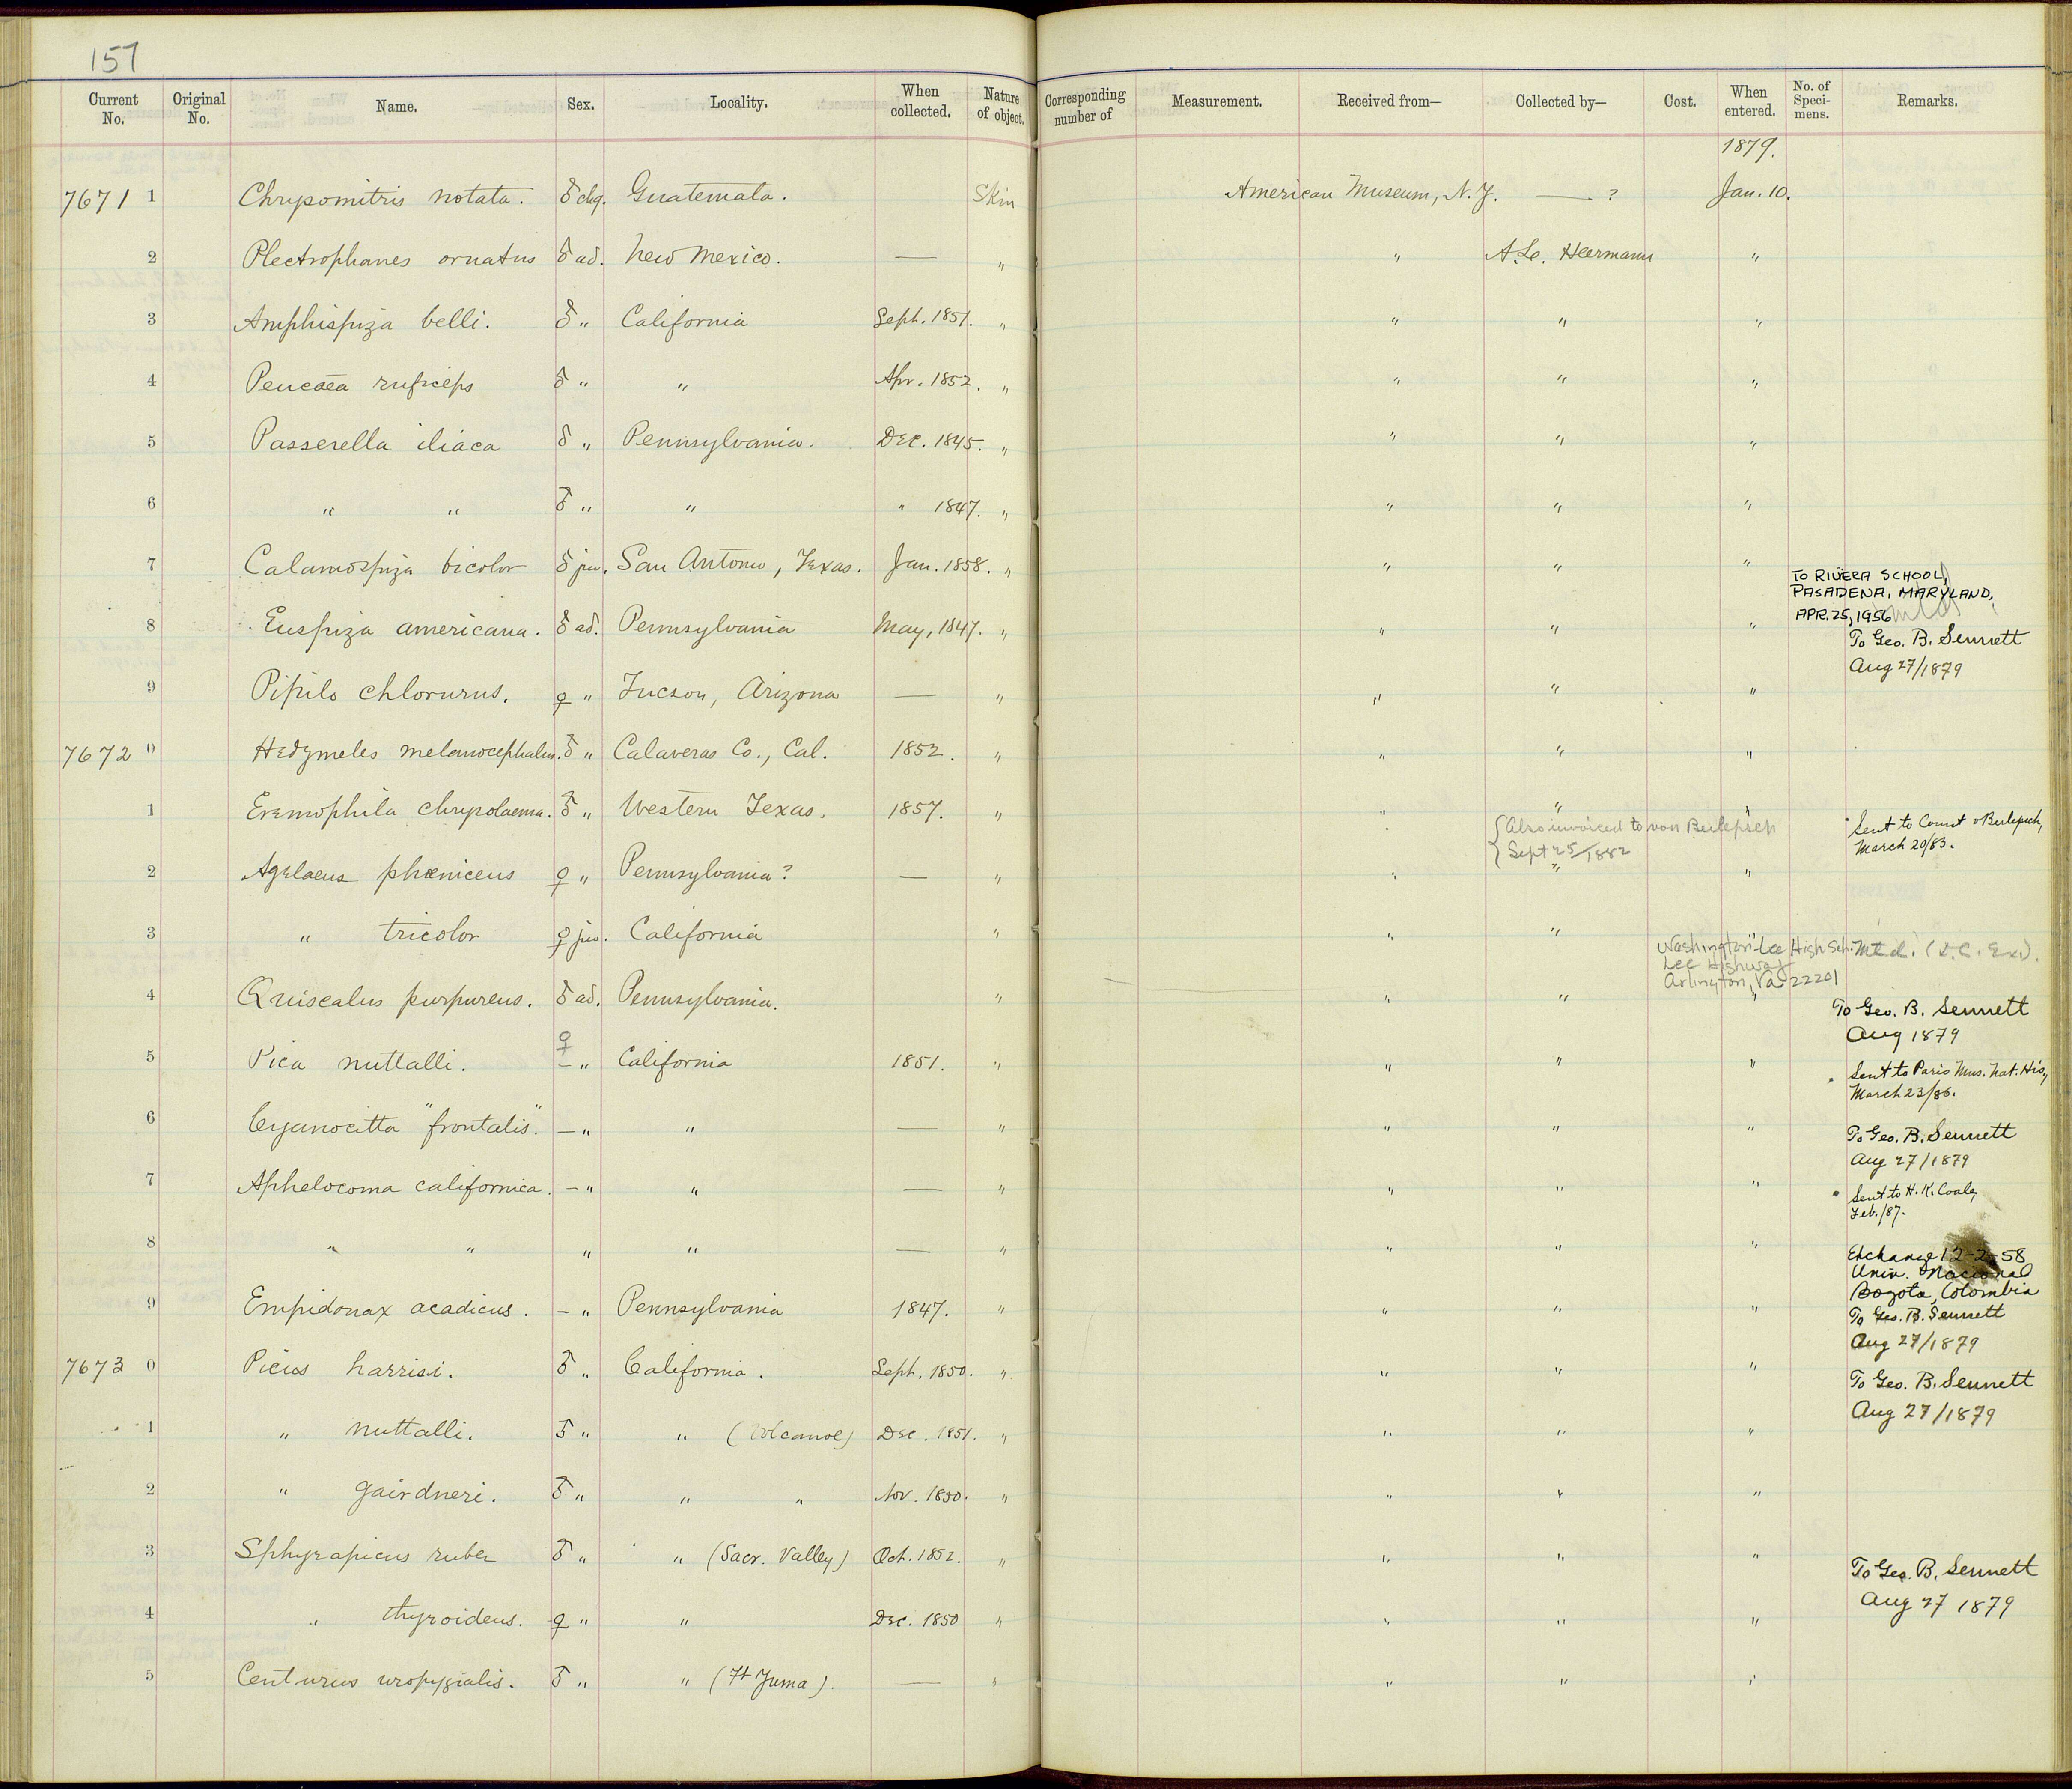 157
Current No. Original No. Name. Sex. Locality. When collected. Nature of object. Corresponding number of Measurement. Received from— Collected by— Cost. When entered. No. of Speci- mens. Remarks.
1879.
7671 1 Chrysomitris notata. ♂ Guatemala. Skin American Museum, N.Y. — ? Jan. 10.
2 Plectrophanes ornatus ♂ ad. New Mexico. — " " A. L. Heermann "
3 Amphispiza belli. ♂ " California Sept. 1851. " " " "
4 Peucaea ruficeps ♂ " " Apr. 1852. " " " "
5 Passerella iliaca ♂ " Pennsylvania. Dec. 1845. " " " "
6 " " ♂ " " " 1847. " " " "
7 Calamospiza bicolor ♂ juv. San Antonio, Texas. Jan. 1858. " " " "
TO RIVERA SCHOOL,
PASADENA, MARYLAND,
APR. 25, 1956
8 Euspiza americana. ♂ ad. Pennsylvania May, 1847. " " " " To Geo. B. Sennett
Aug 27/1879
9 Pipilo chlorurus. ♀ " Tucson, Arizona — " " " "
7672 0 Hedymeles melanocephalus. ♂ " Calaveras Co., Cal. 1852. " " " "
1 Eremophila chrysolaema. ♂ " Western Texas. 1857. " " " " Sent to Count v Berlepsch,
March 20/83.
{ Also invoiced to von Berlepsch
{ Sept 25/1882
2 Agelaeus phœniceus ♀ " Pennsylvania? — " " " "
3 " tricolor ♀ juv. California " " " "
Washington-Lee High Sch. Mtd. (D.C. Ex.).
Lee Highway
Arlington, Va 22201
4 Quiscalus purpureus. ♂ ad. Pennsylvania. " " " " To Geo. B. Sennett
Aug 1879
♀
5 Pica nuttalli. – " California 1851. " " " " Sent to Paris Mus. Nat. His,
March 23/86.
6 Cyanocitta "frontalis". – " " — " " " " To Geo. B. Sennett
Aug 27/1879
7 Aphelocoma californica. – " " — " " " " Sent to H. K. Coale,
Feb./87.
8 " " " " — " " " " Exchange 12-2-58
Univ. Nacional
Bogota, Colombia
9 Empidonax acadicus. – " Pennsylvania 1847. " " " " To Geo. B. Sennett
Aug 27/1879
7673 0 Picus harrisi. ♂ " California. Sept. 1850. " " " " To Geo. B. Sennett
Aug 27/1879
1 " nuttalli. ♂ " " (Volcanoe) Dec. 1851. " " " "
2 " gairdneri. ♂ " " " Nov. 1850. " " " "
3 Sphyrapicus ruber ♂ " " (Sacr. Valley) Oct. 1852. " " " " To Geo. B. Sennett
Aug 27 1879
4 " thyroideus. ♀ " " Dec. 1850 " " " "
5 Centurus uropygialis. ♂ " " (Ft Yuma). — " " " "